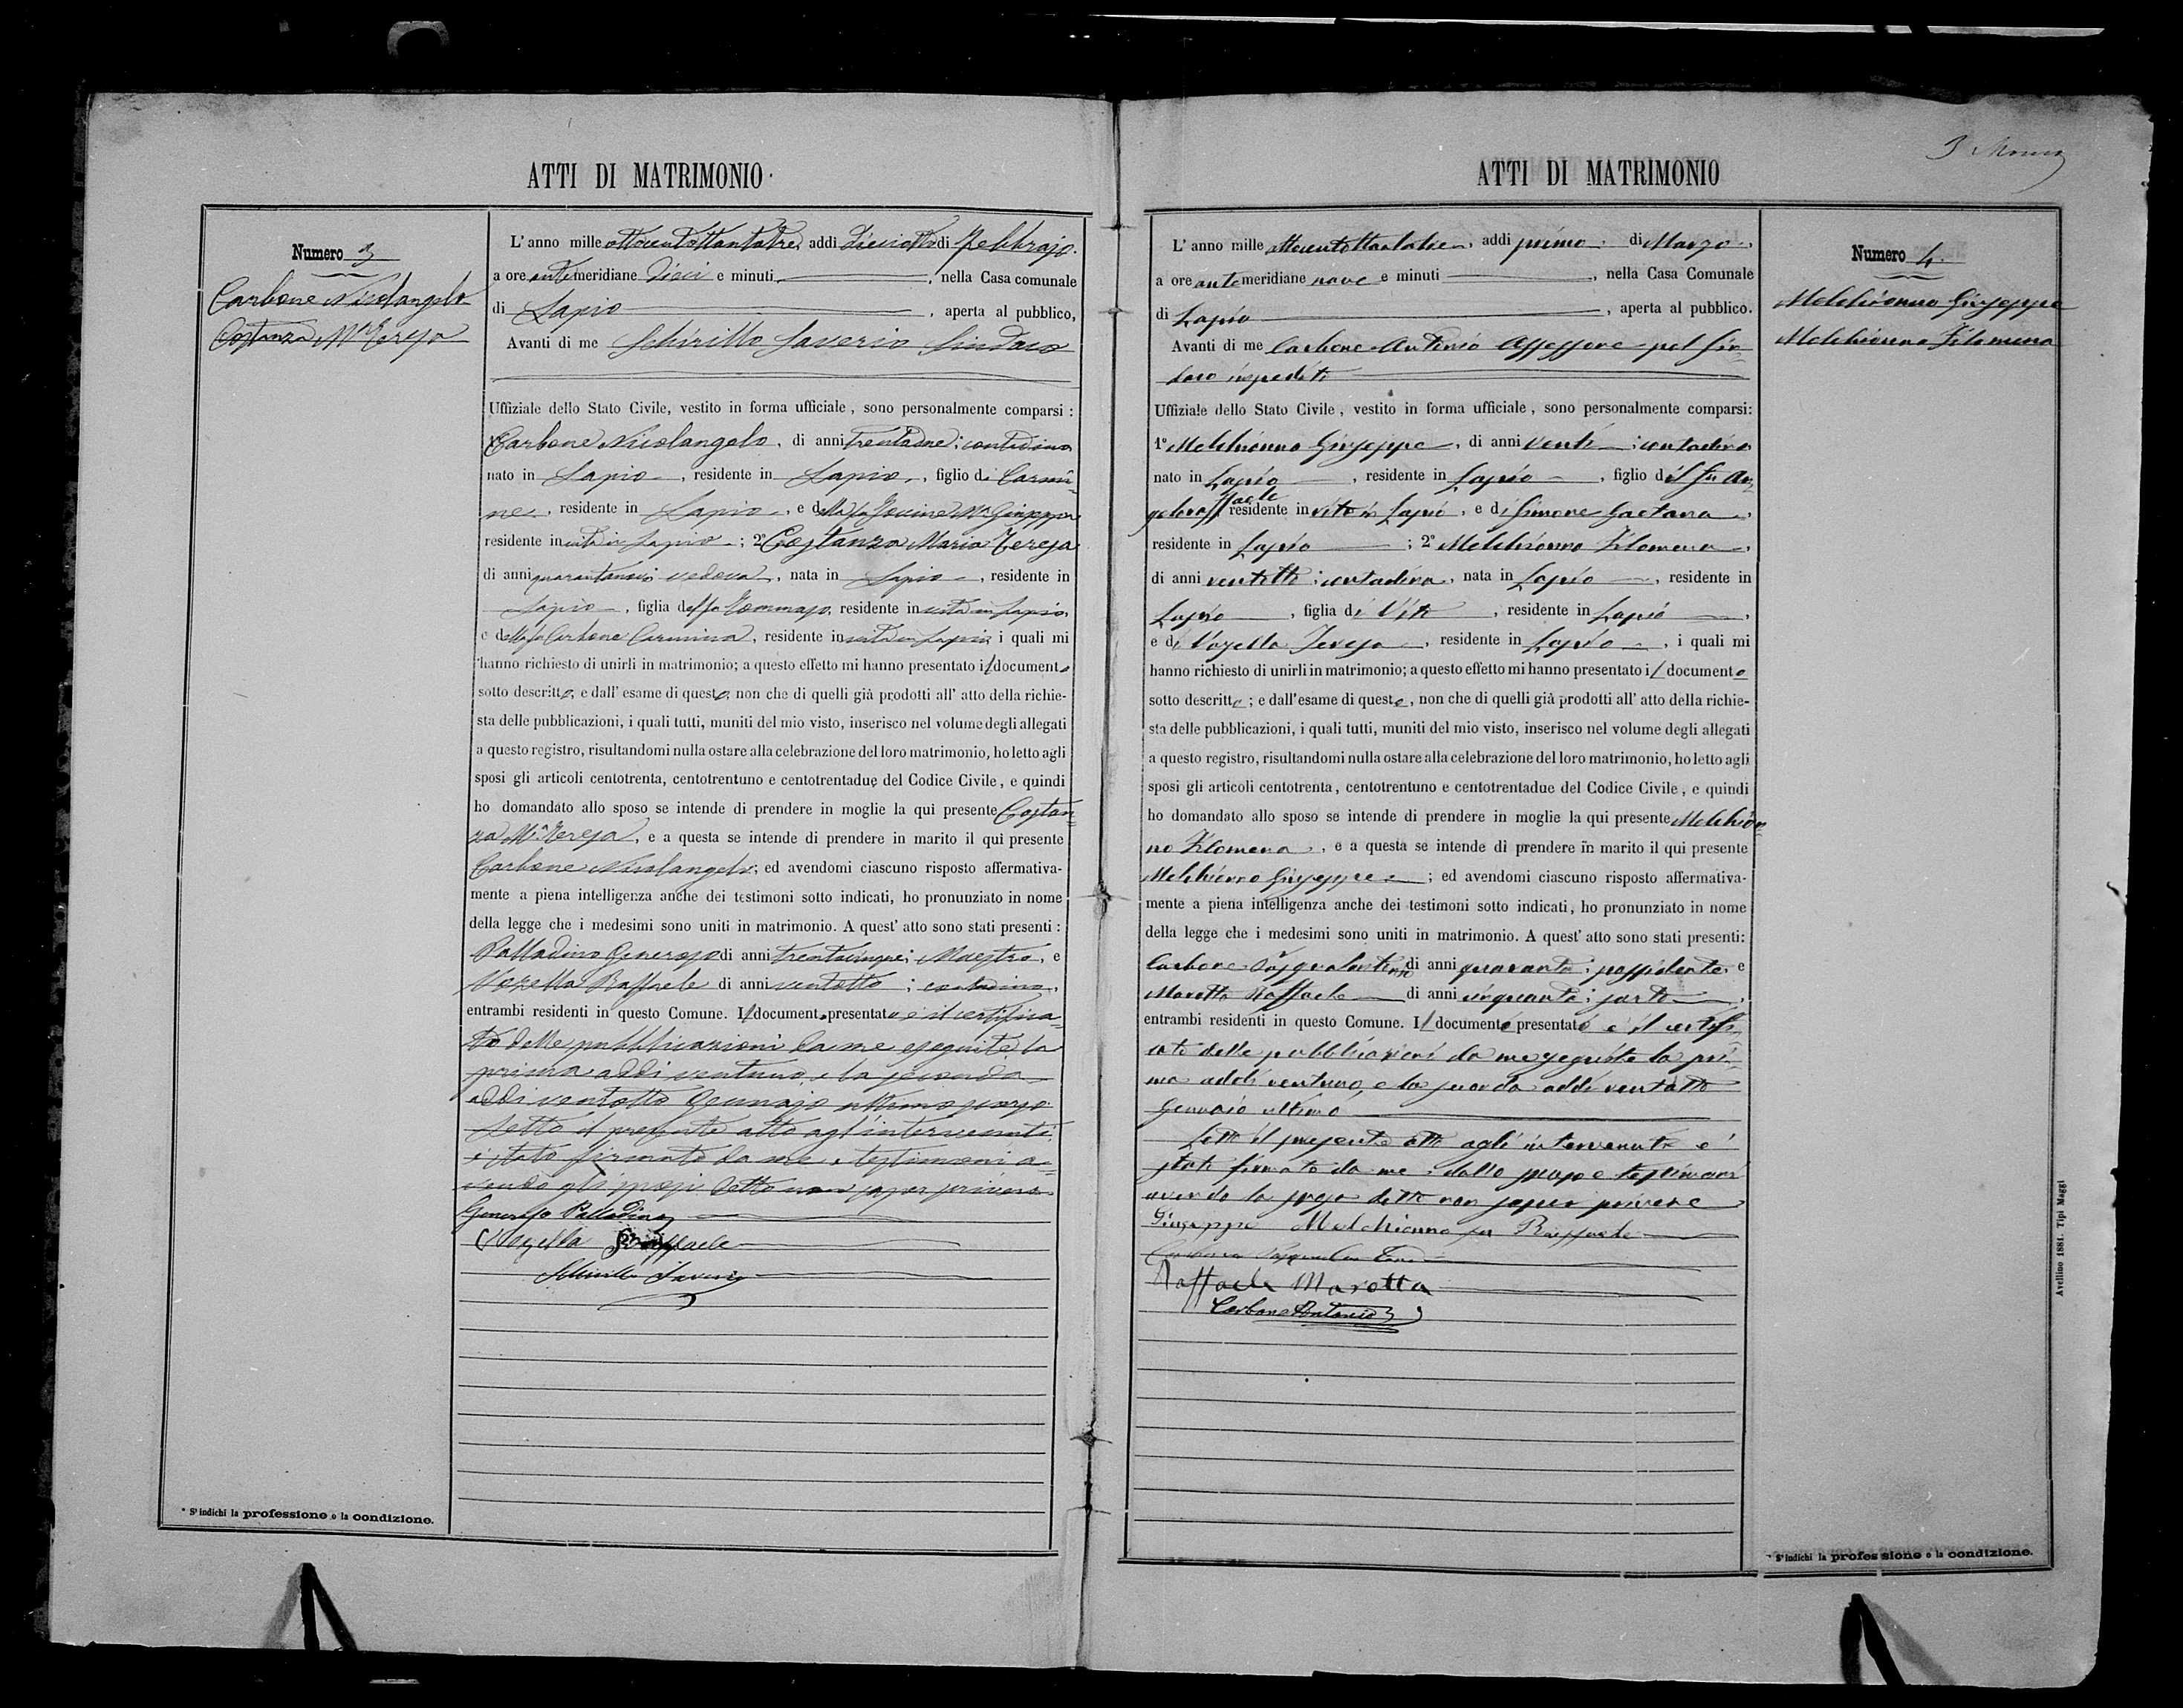 ATTI DI MATRIMONIO
Numero 3
Carbone Nicolangelo
Costanza Mª Teresa
L'anno mille ottocentottantatre, addì dieciotto di Febbrajo.
a ore antimeridiane dieci e minuti , nella Casa comunale
di Lapio , aperta al pubblico,
Avanti di me Schirillo Saverio Sindaco
Uffiziale dello Stato Civile, vestito in forma ufficiale, sono personalmente comparsi:
Carbone Nicolangelo, di anni ; contadino
nato in Lapio, residente in Lapio, figlio di Carmi-
ne, residente in Lapio, e della fu Iovine Mª Giuseppa
residente in vita in Lapio; 2º Costanza Maria Teresa
di anni vedova, nata in Lapio, residente in
Lapio, figlia del fu Tommaso, residente in vita in Lapio,
e della fu Carbone Carmina, residente in vita in Lapio i quali mi
hanno richiesto di unirli in matrimonio; a questo effetto mi hanno presentato il documento
sotto descritto, e dall'esame di questo, non che di quelli già prodotti all'atto della richie-
sta delle pubblicazioni, i quali tutti, muniti del mio visto, inserisco nel volume degli allegati
a questo registro, risultandomi nulla ostare alla celebrazione del loro matrimonio, ho letto agli
sposi gli articoli centotrenta, centotrentuno e centotrentadue del Codice Civile, e quindi
ho domandato allo sposo se intende di prendere in moglie la qui presente Costan-
za Mª Teresa, e a questa se intende di prendere in marito il qui presente
Carbone Nicolangelo; ed avendomi ciascuno risposto affermativa-
mente a piena intelligenza anche dei testimoni sotto indicati, ho pronunziato in nome
della legge che i medesimi sono uniti in matrimonio. A quest'atto sono stati presenti:
Palladino Generoso di anni trentacinque; Maestro, e
Vozella Raffaele di anni ventotto; contadino,
entrambi residenti in questo Comune. Il documento presentato è il certifica-
to delle pubblicazioni da me eseguite la
prima addì ventuno, e la seconda
addì ventotto Gennajo ultimo scorso
Letto il presente atto agl'intervenuti
è stato firmato da me e testimoni a-
vendo gli sposi detto non saper scrivere
Generoso Palladino
Vozella Raffaele
Schirillo Saverio
* S'indichi la professione o la condizione.
ATTI DI MATRIMONIO
Numero 4.
Melchionno Giuseppe
Melchionno Filomena
L'anno mille ottocentottantatre, addì primo di Marzo,
a ore antemeridiane nove e minuti , nella Casa Comunale
di Lapio , aperta al pubblico.
Avanti di me Carbone Antonio Assessore pel Sin-
daco impedito
Uffiziale dello Stato Civile, vestito in forma ufficiale, sono personalmente comparsi:
1º Melchionno Giuseppe, di anni venti; contadino
nato in Lapio, residente in Lapio, figlio del fu An-
geloraffaele residente in vita in Lapio, e di Simone Gaetana,
residente in Lapio; 2º Melchionno Filomena,
di anni ventotto; contadina, nata in Lapio, residente in
Lapio, figlia di Vito, residente in Lapio,
e di Vozella Teresa, residente in Lapio, i quali mi
hanno richiesto di unirli in matrimonio; a questo effetto mi hanno presentato il documento
sotto descritto; e dall'esame di questo, non che di quelli già prodotti all'atto della richie-
sta delle pubblicazioni, i quali tutti, muniti del mio visto, inserisco nel volume degli allegati
a questo registro, risultandomi nulla ostare alla celebrazione del loro matrimonio, ho letto agli
sposi gli articoli centotrenta, centotrentuno e centotrentadue del Codice Civile, e quindi
ho domandato allo sposo se intende di prendere in moglie la qui presente Melchion-
no Filomena, e a questa se intende di prendere in marito il qui presente
Melchionno Giuseppe; ed avendomi ciascuno risposto affermativa-
mente a piena intelligenza anche dei testimoni sotto indicati, ho pronunziato in nome
della legge che i medesimi sono uniti in matrimonio. A quest'atto sono stati presenti:
Carbone Pasqualantonio di anni quaranta; possidente, e
Marotta Raffaele di anni cinquanta; sarto,
entrambi residenti in questo Comune. Il documento presentato è il certifi-
cato delle pubblicazioni da me eseguite la pri-
ma addì ventuno, e la seconda addì ventotto
Gennaio ultimo
Letto il presente atto agli intervenuti è
stato firmato da me, dallo sposo e testimoni
avendo la sposa detto non saper scrivere
Giuseppe Melchionno fu Raffaele
Raffaele Marotta
Carbone Antonio
* S'indichi la professione o la condizione.
Avellino 1881. Tipi Maggi